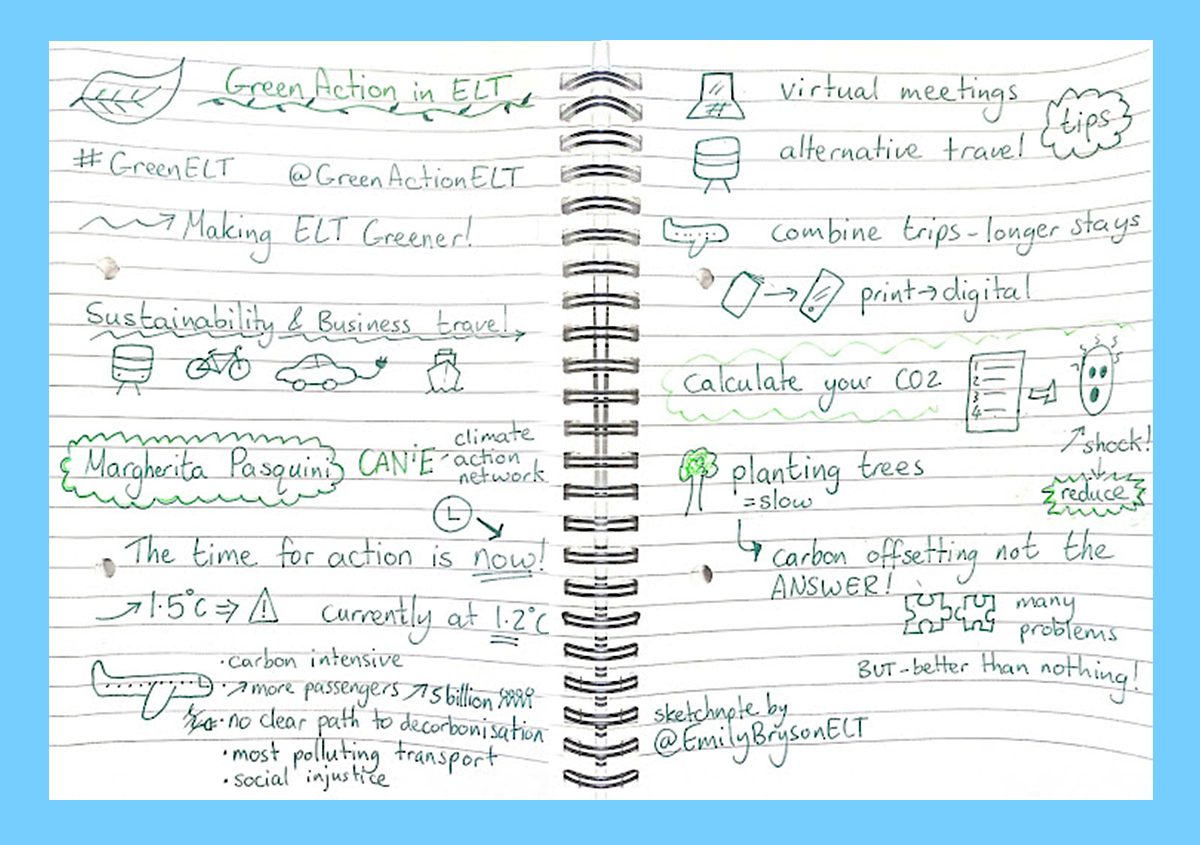 Green Action in ELT
#GreenELT @GreenActionELT
Making ELT Greener!
Sustainability & Business travel
Margherita Pasquini CAN'E climate
action
network
The time for action is now!
1.5°C ⇒ ! currently at 1.2°C
· carbon intensive
· ↗ more passengers ↗ 5 billion
· no clear path to decorbonisation
· most polluting transport
· social injustice
virtual meetings
tips
alternative travel
combine trips - longer stays
print → digital
Calculate your CO2
1
2
3
4
shock!
reduce
planting trees
= slow
carbon offsetting not the
ANSWER!
many
problems
BUT - better than nothing!
sketchnote by
@EmilyBrysonELT